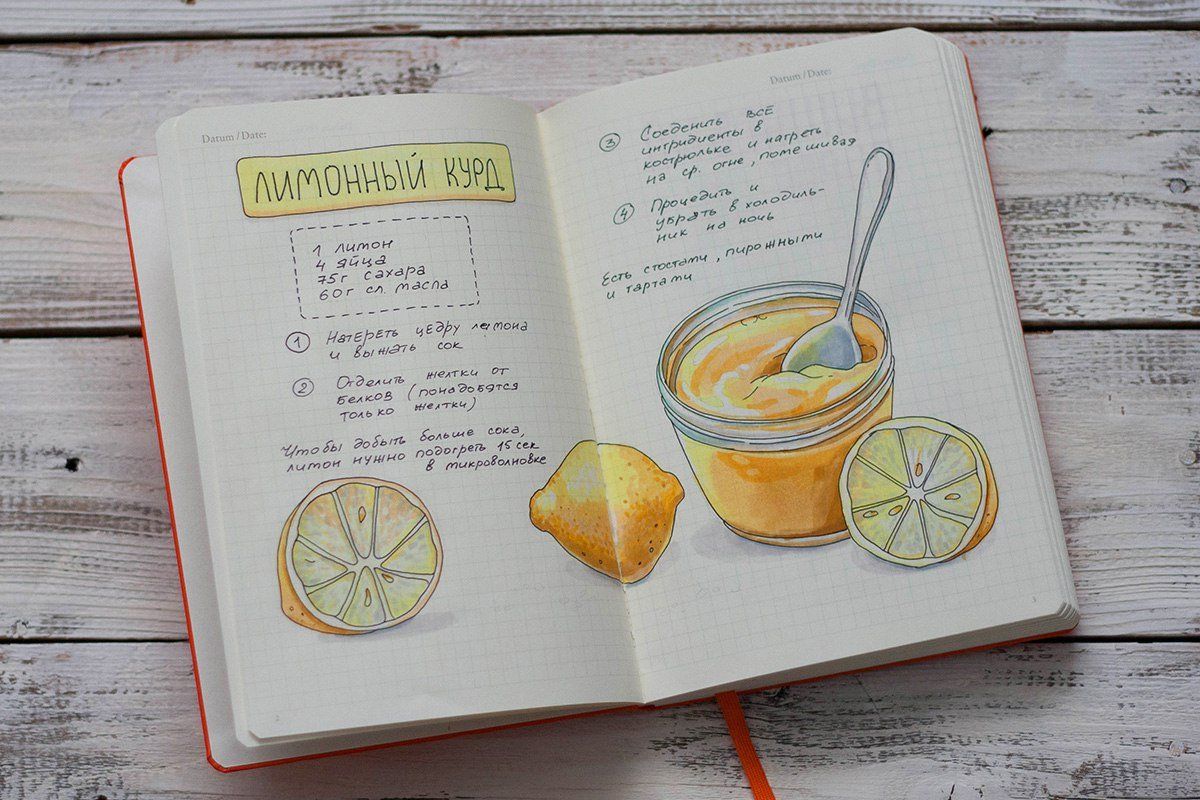 Datum / Date:
ЛИМОННЫЙ КУРД
1 лимон
4 яйца
75г сахара
60г сл. масла
1 Натереть цедру лимона
и выжать сок
2 Отделить желтки от
белков (понадобятся
только желтки)
Чтобы добыть больше сока,
лимон нужно подогреть 15 сек
в микроволновке
Datum / Date:
3 Соеденить все
ингридиенты в
кострюльке и нагреть
на ср. огне, помешивая
4 Процедить и
убрать в холодиль-
ник на ночь
Есть стостами, пирожными
и тартами